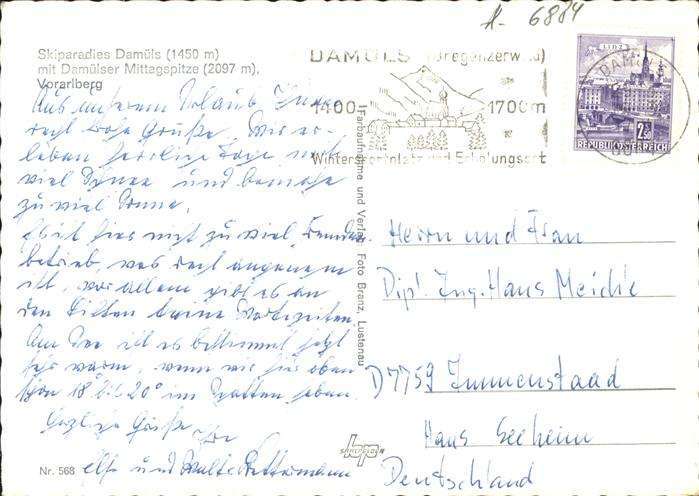 A- 6884
Skiparadies Damüls (1450 m)
mit Damülser Mittagspitze (2097 m),
Vorarlberg
DAMÜLS (Bregenzerwald)
1400 - 1700m
Wintersportplatz und Erholungsort
DAMÜLS
2.50
REPUBLIK ÖSTERREICH
Aus unserem Urlaub Ihnen
recht frohe Grüße. Wir er-
leben herrliche Tage mit
viel Schnee und beinahe
zu viel Sonne.
Es ist hier nicht zu viel Fremden-
betrieb, was recht angenehm
ist, vor allem gibt es an
den Liften keine Wartezeiten.
Am See ist es bestimmt jetzt
sehr warm, wenn wir hier oben
schon 18 bis 20° im Schatten haben.
Herzliche Grüße Ihre
und
Farbaufnahme und Verlag: Foto Branz, Lustenau
Herrn und Frau
Dipl. Ing. Hans
D 7759 Immenstaad
Haus Seeheim
Deutschland
Nr. 568